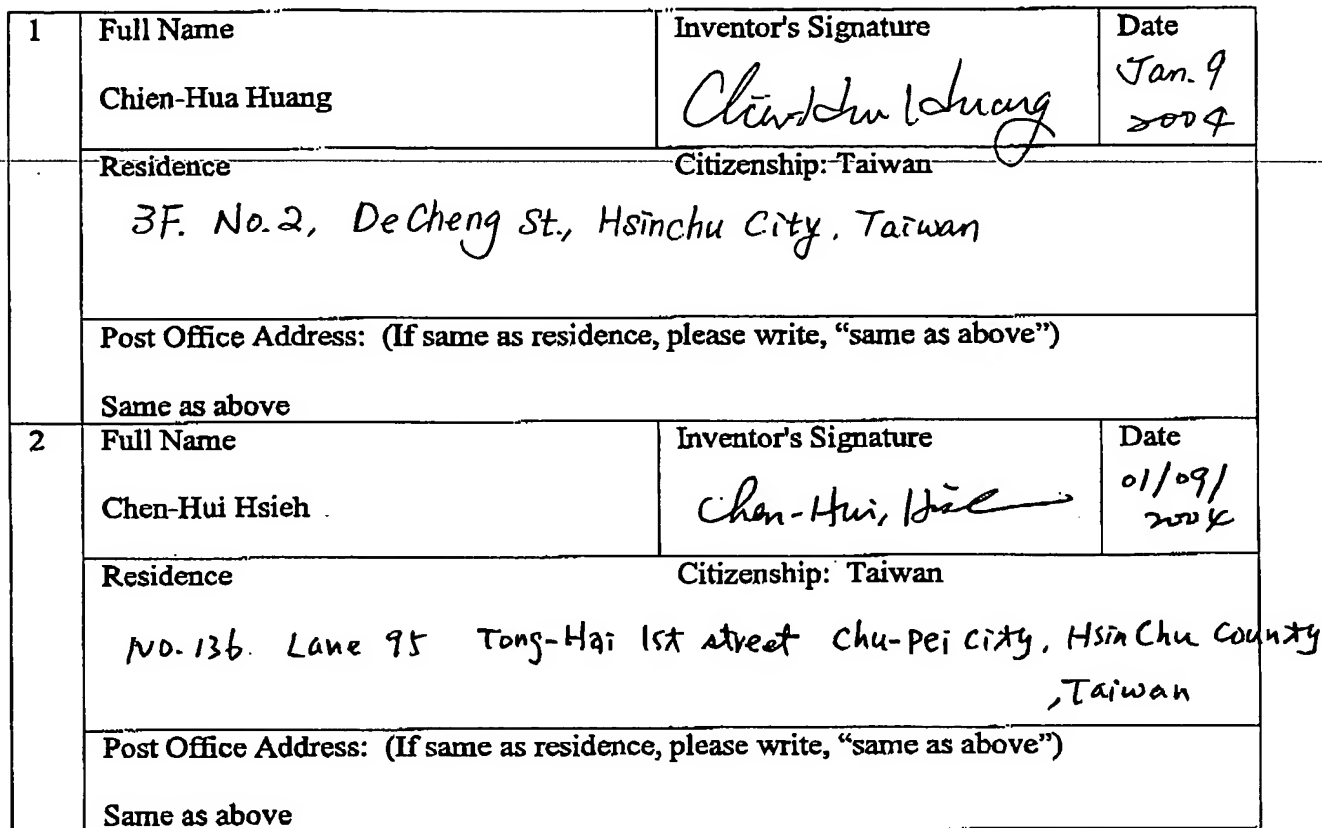 1 Full Name Inventor's Signature Date
Chien-Hua Huang Chien-Hua Huang Jan. 9
2004
Residence Citizenship: Taiwan
3F. No.2, De Cheng St., Hsinchu City, Taiwan
Post Office Address: (If same as residence, please write, “same as above”)
Same as above
2 Full Name Inventor's Signature Date
Chen-Hui Hsieh Chen-Hui, Hsieh 01/09/
2004
Residence Citizenship: Taiwan
No. 136. Lane 95 Tong-Hai 1st street Chu-Pei City, HsinChu County
, Taiwan
Post Office Address: (If same as residence, please write, “same as above”)
Same as above